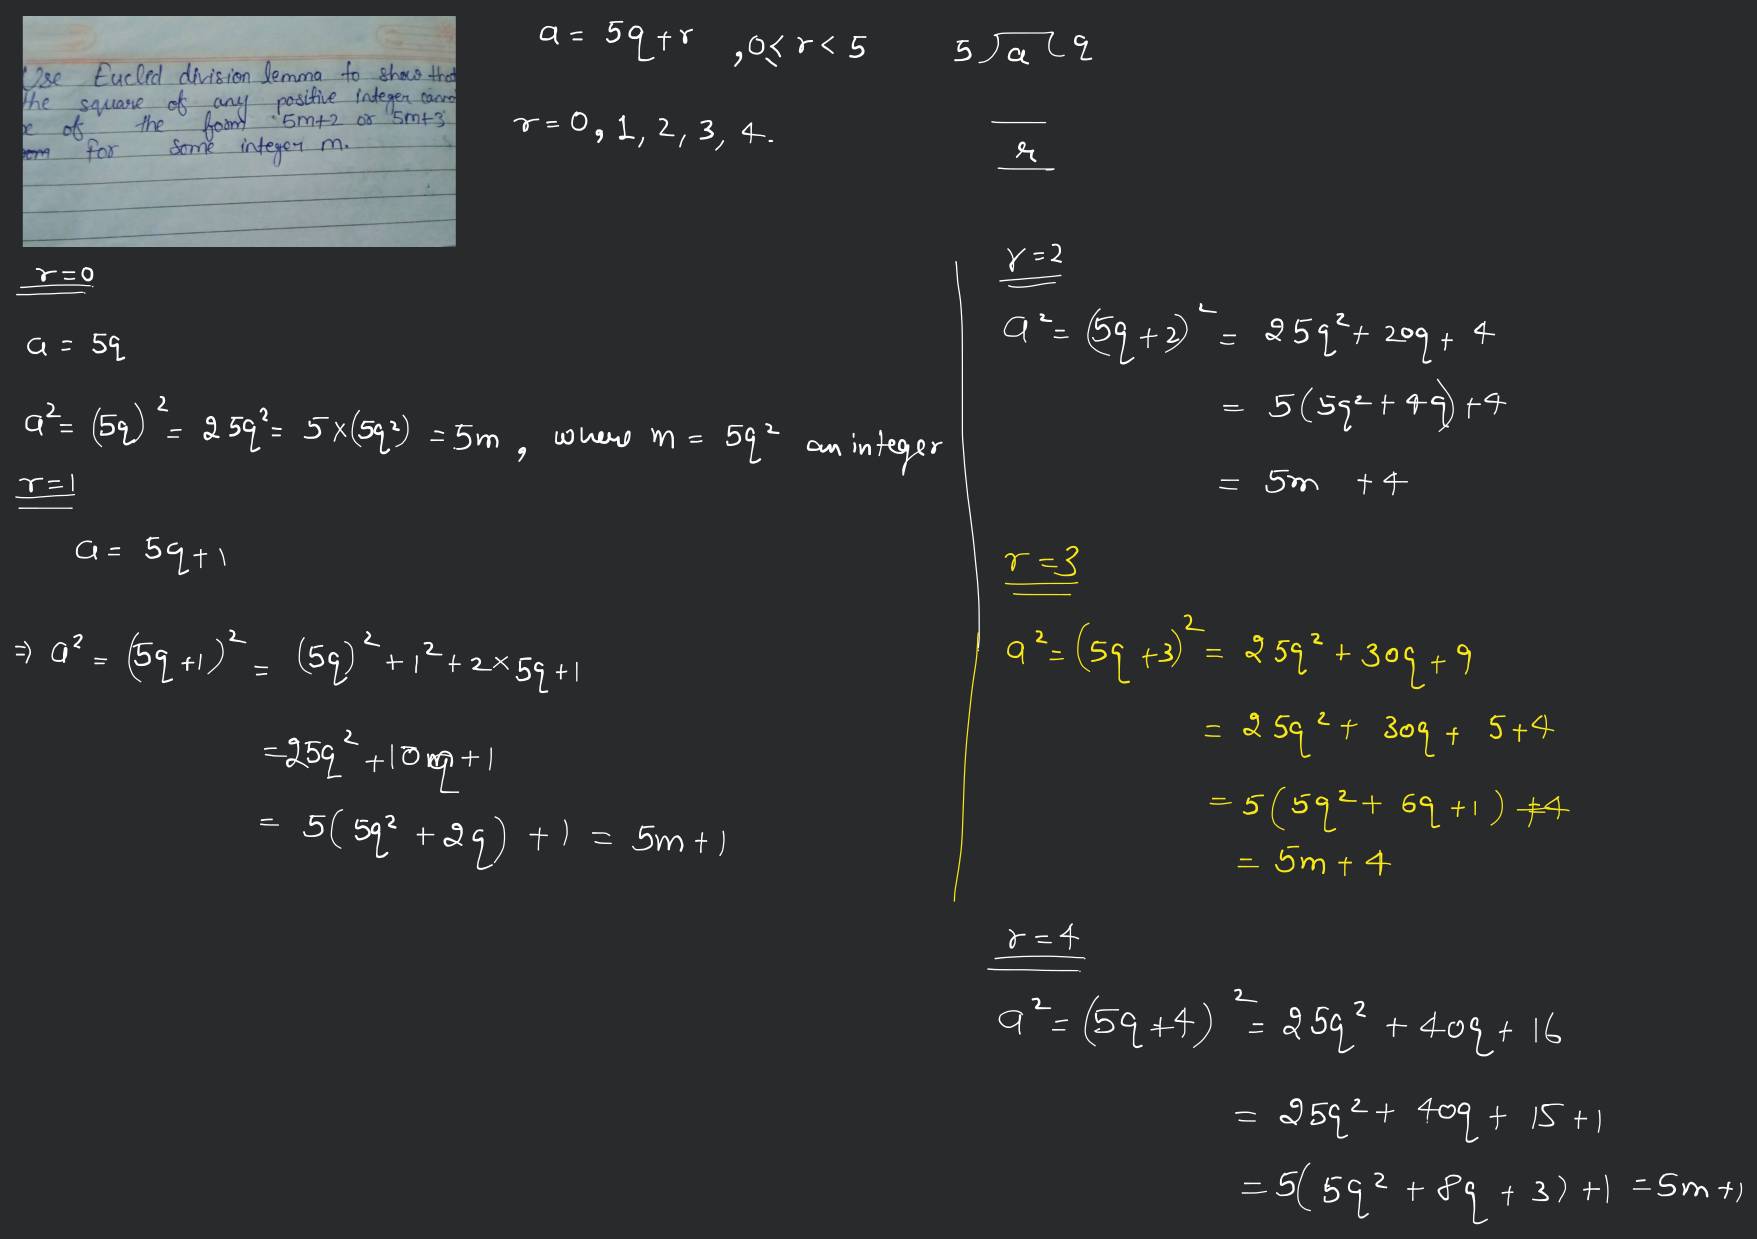 Use Euclid division lemma to show that
the square of any positive integer
of the form 5m+2 or 5m+3
for some integer m.
a = 5q+r , 0≤ r < 5
5)a(q
r
r = 0, 1, 2, 3, 4.
r=0
a = 5q
a² = (5q)² = 25q² = 5×(5q²) = 5m, where m = 5q² an integer
r=1
a = 5q+1
⇒ a² = (5q+1)² = (5q)² + 1² + 2×5q+1
=25q² +10q+1
= 5(5q² + 2q) + 1 = 5m+1
r=2
a² = (5q+2)² = 25q² + 20q + 4
= 5(5q² + 4q) +4
= 5m +4
r=3
a² = (5q+3)² = 25q² + 30q + 9
= 25q² + 30q + 5+4
= 5(5q² + 6q +1) +4
= 5m + 4
r=4
a² = (5q+4)² = 25q² + 40q + 16
= 25q² + 40q + 15 +1
= 5(5q² + 8q + 3) +1 = 5m+1